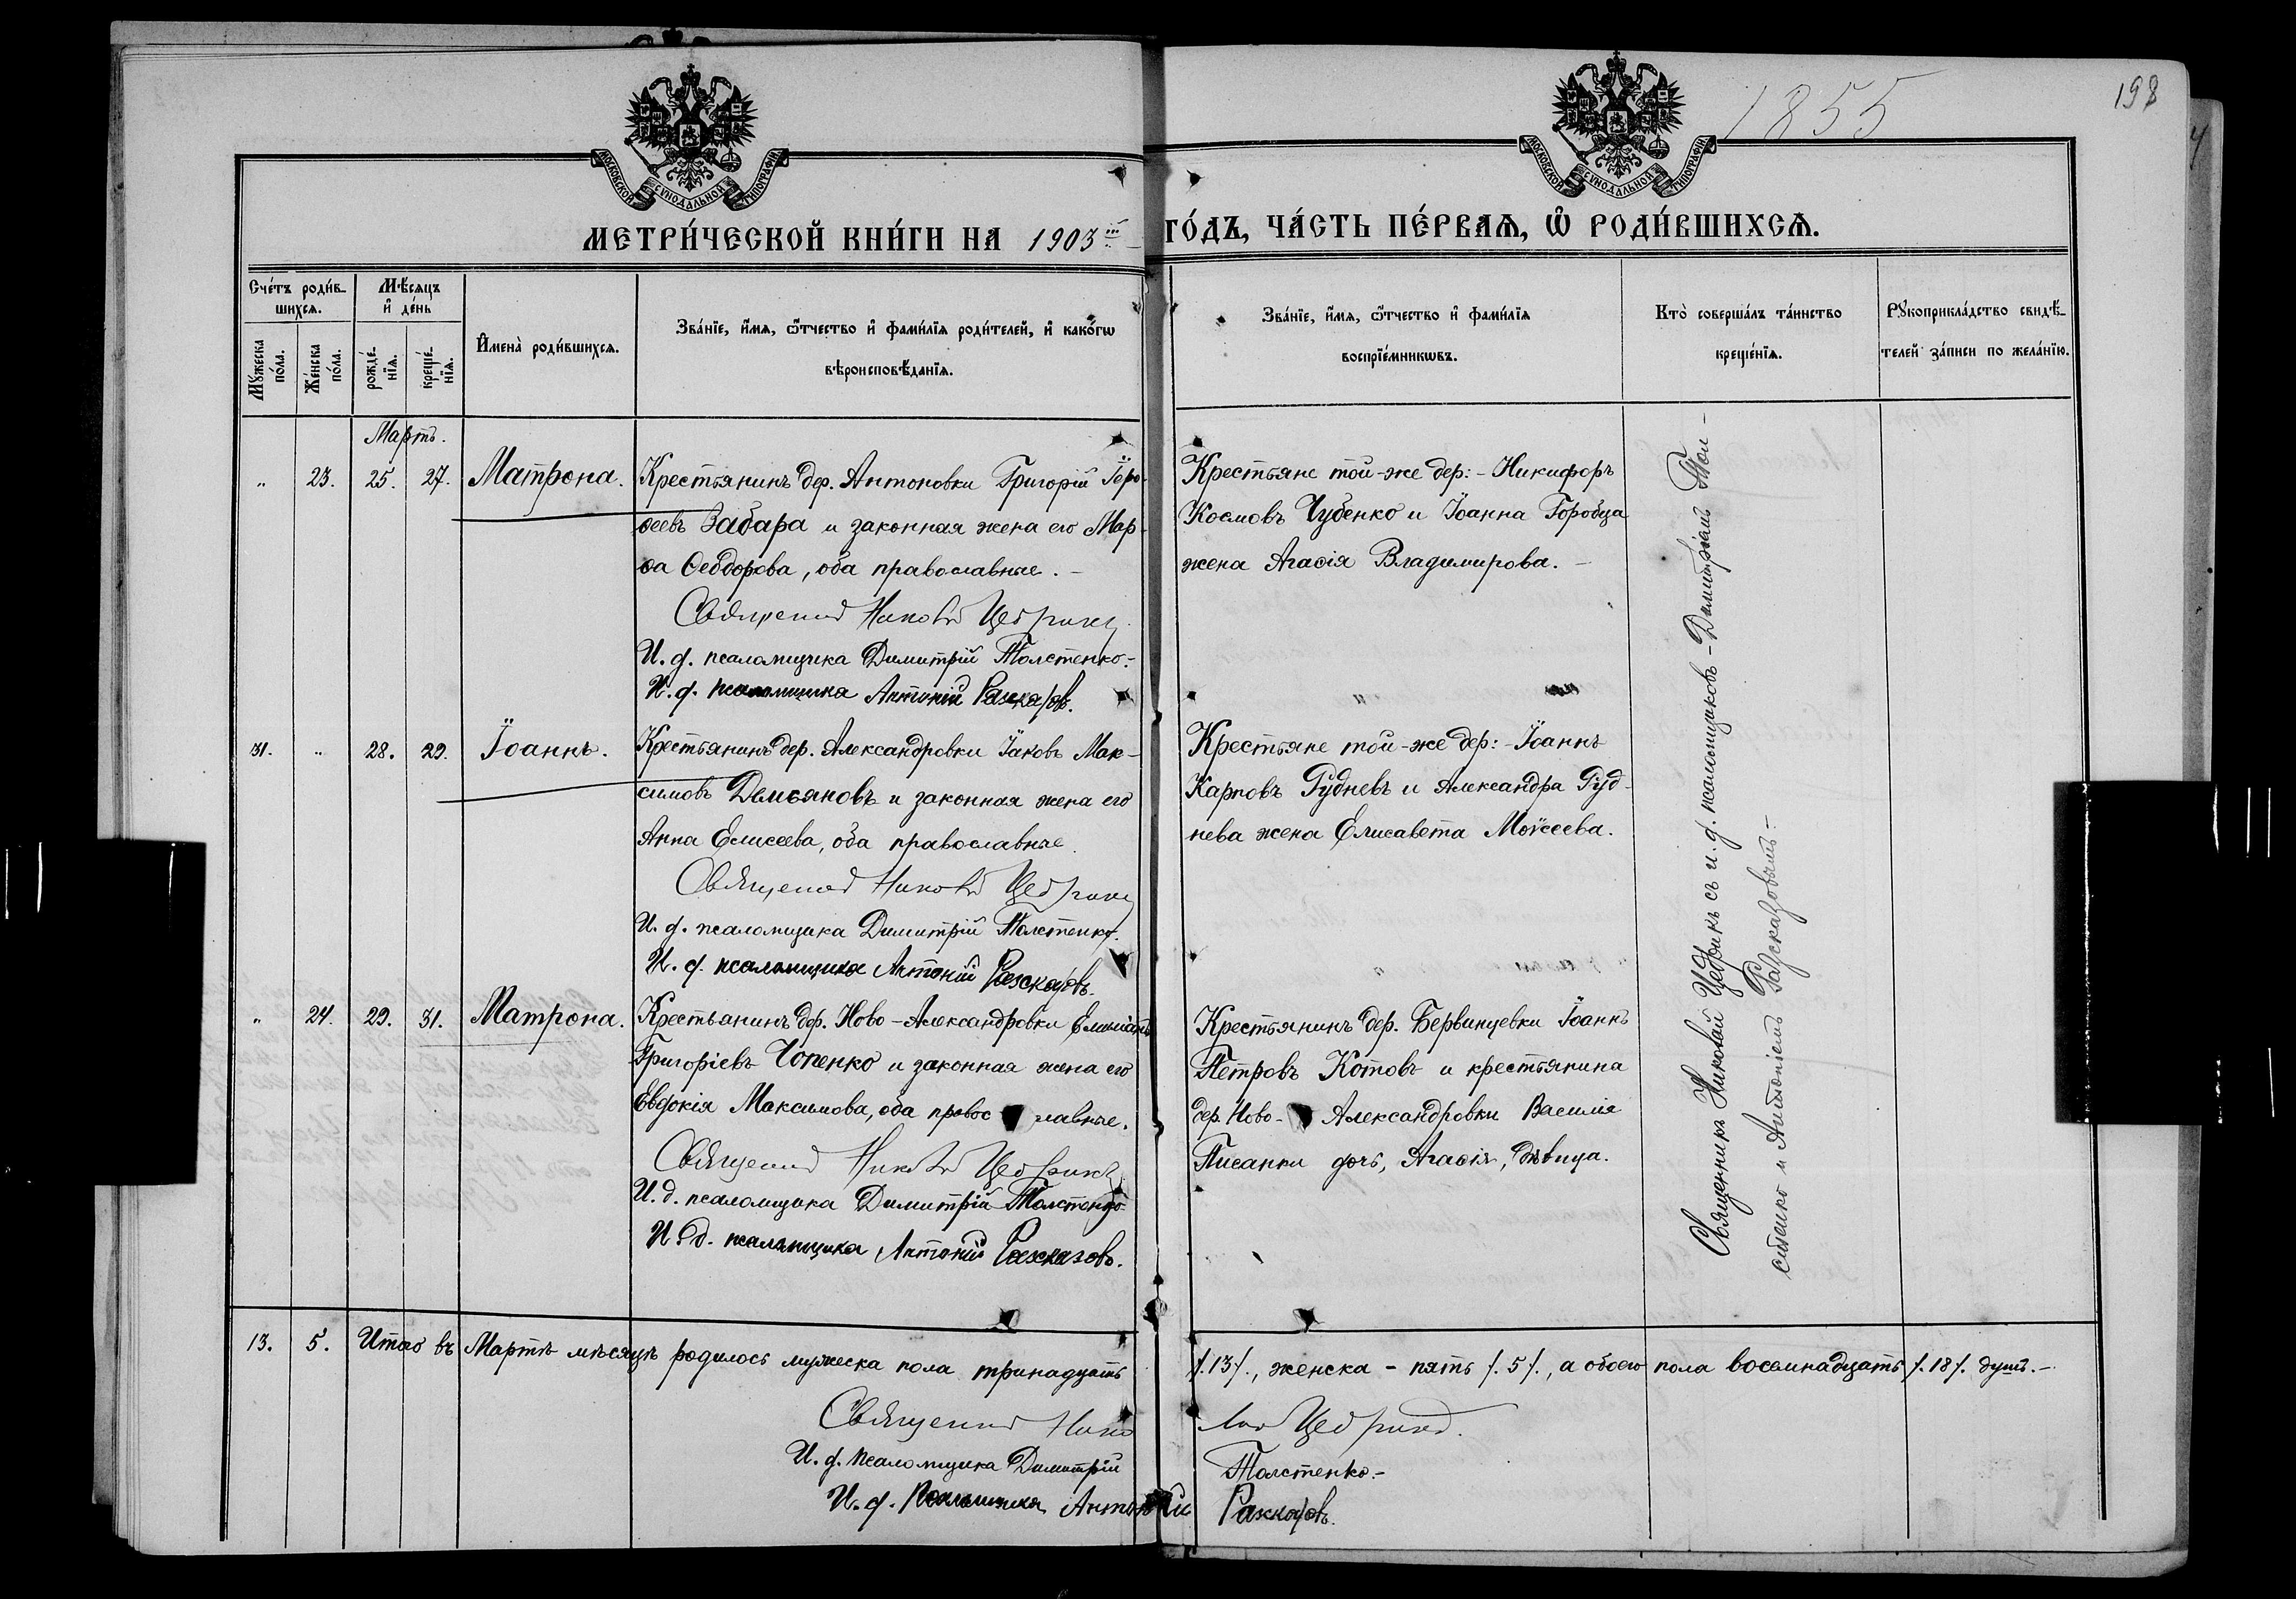 1855
198
МОСКОВСКОЙ СѴНОДАЛЬНОЙ ТИПОГРАФІИ
МОСКОВСКОЙ СѴНОДАЛЬНОЙ ТИПОГРАФІИ
МЕТРИ́ЧЕСКОЙ КНИ́ГИ НА 1903 й ГО́ДЪ, ЧА́СТЬ ПЕ́РВАѦ, Ѡ҆ РОДИ́ВШИХСѦ.
Сче́тъ роди́в-
шихсѧ.
Мꙋ́жеска по́ла.
Же́нска по́ла.
Мѣ́сѧцъ
и҆ де́нь
рожде́-
нїѧ.
креще́-
нїѧ.
И҆мена̀ роди́вшихсѧ.
Зва́нїе, и҆́мѧ, ѻ҆́тчество и҆ фами́лїѧ роди́телей, и҆ како́гѡ
вѣроисповѣ́данїѧ.
Зва́нїе, и҆́мѧ, ѻ҆́тчество и҆ фами́лїѧ
воспрїе́мникѡвъ.
Кто̀ соверша́лъ та́инство
креще́нїѧ.
Рꙋкоприкла́дство свидѣ́-
телей за́писи по жела́нїю.
Мартъ.
„ 23. 25. 27. Матрона.
Крестьянинъ дер. Антоновки Григорій Їеро-
ѳеевъ Забара и законная жена его Мар-
ѳа Ѳеодорова, оба православные. –
Священникъ Николай Цебрикъ
И. д. псаломщика Димитрій Толстенко.-
И. д. псаломщика Антоній Разсказовъ.
Крестьяне той-же дер:- Никифоръ
Космовъ Чубенко и Їоанна Горобца
жена Агаѳія Владимирова. –
31. „ 28. 29. Їоаннъ.
Крестьянинъ дер. Александровки Їаковъ Мак-
симовъ Демьяновъ и законная жена его
Анна Елисеева, оба православные.
Священникъ Николай Цебрикъ
И. д. псаломщика Димитрій Толстенко.
И. д. псаломщика Антоній Разсказовъ.
Крестьяне той-же дер:- Їоаннъ
Карповъ Рудневъ и Александра Руд-
нева жена Елисавета Моѵсеева.
„ 24. 29. 31. Матрона.
Крестьянинъ дер. Ново-Александровки
Григоріевъ Чопенко и законная жена его
Евдокія Максимова, оба православные.
Священникъ Николай Цебрикъ
И. д. псаломщика Димитрій Толстенко
И. д. псаломщика Антоній Разсказовъ.
Крестьянинъ дер. Бервинцевки Їоаннъ
Петровъ Котовъ и крестьянина
дер. Ново- Александровки Василія
Писанки дочь, Агаѳія, дѣвица.
Священникъ Николай Цебрикъ съ и. д. псаломщиковъ - Димитріемъ Тол-
стенко и Антоніемъ Разсказовымъ.-
13. 5. Итого въ Мартѣ мѣсяцѣ родилось мужеска пола тринадцать /.13/., женска - пять /.5/., а обоего пола восемнадцать /.18/. душъ.-
Священникъ Николай Цебрикъ.
И. д. псаломщика Димитрій Толстенко.-
И. д. псаломщика Антоній Разсказовъ.